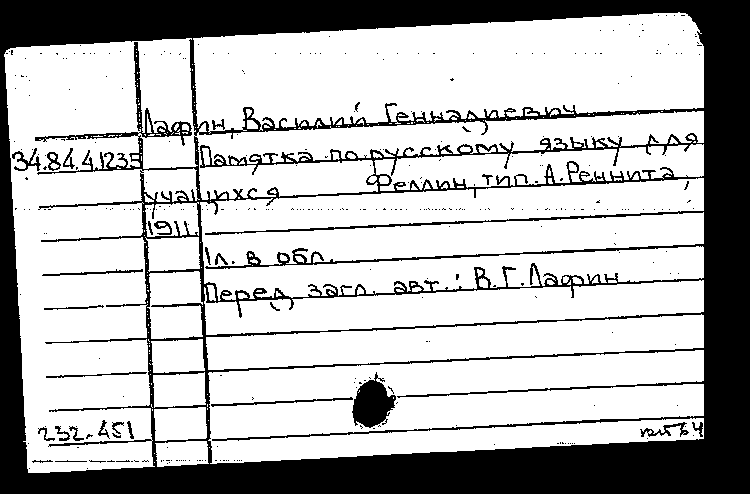 Лафин, Василий Геннадиевич
34.84.4.1235 Памятка по русскому языку для
учащихся Феллин, тип. А. Реннита,
1911.
1л. в обл.
Перед загл. авт.: В.Г. Лафин
232-451